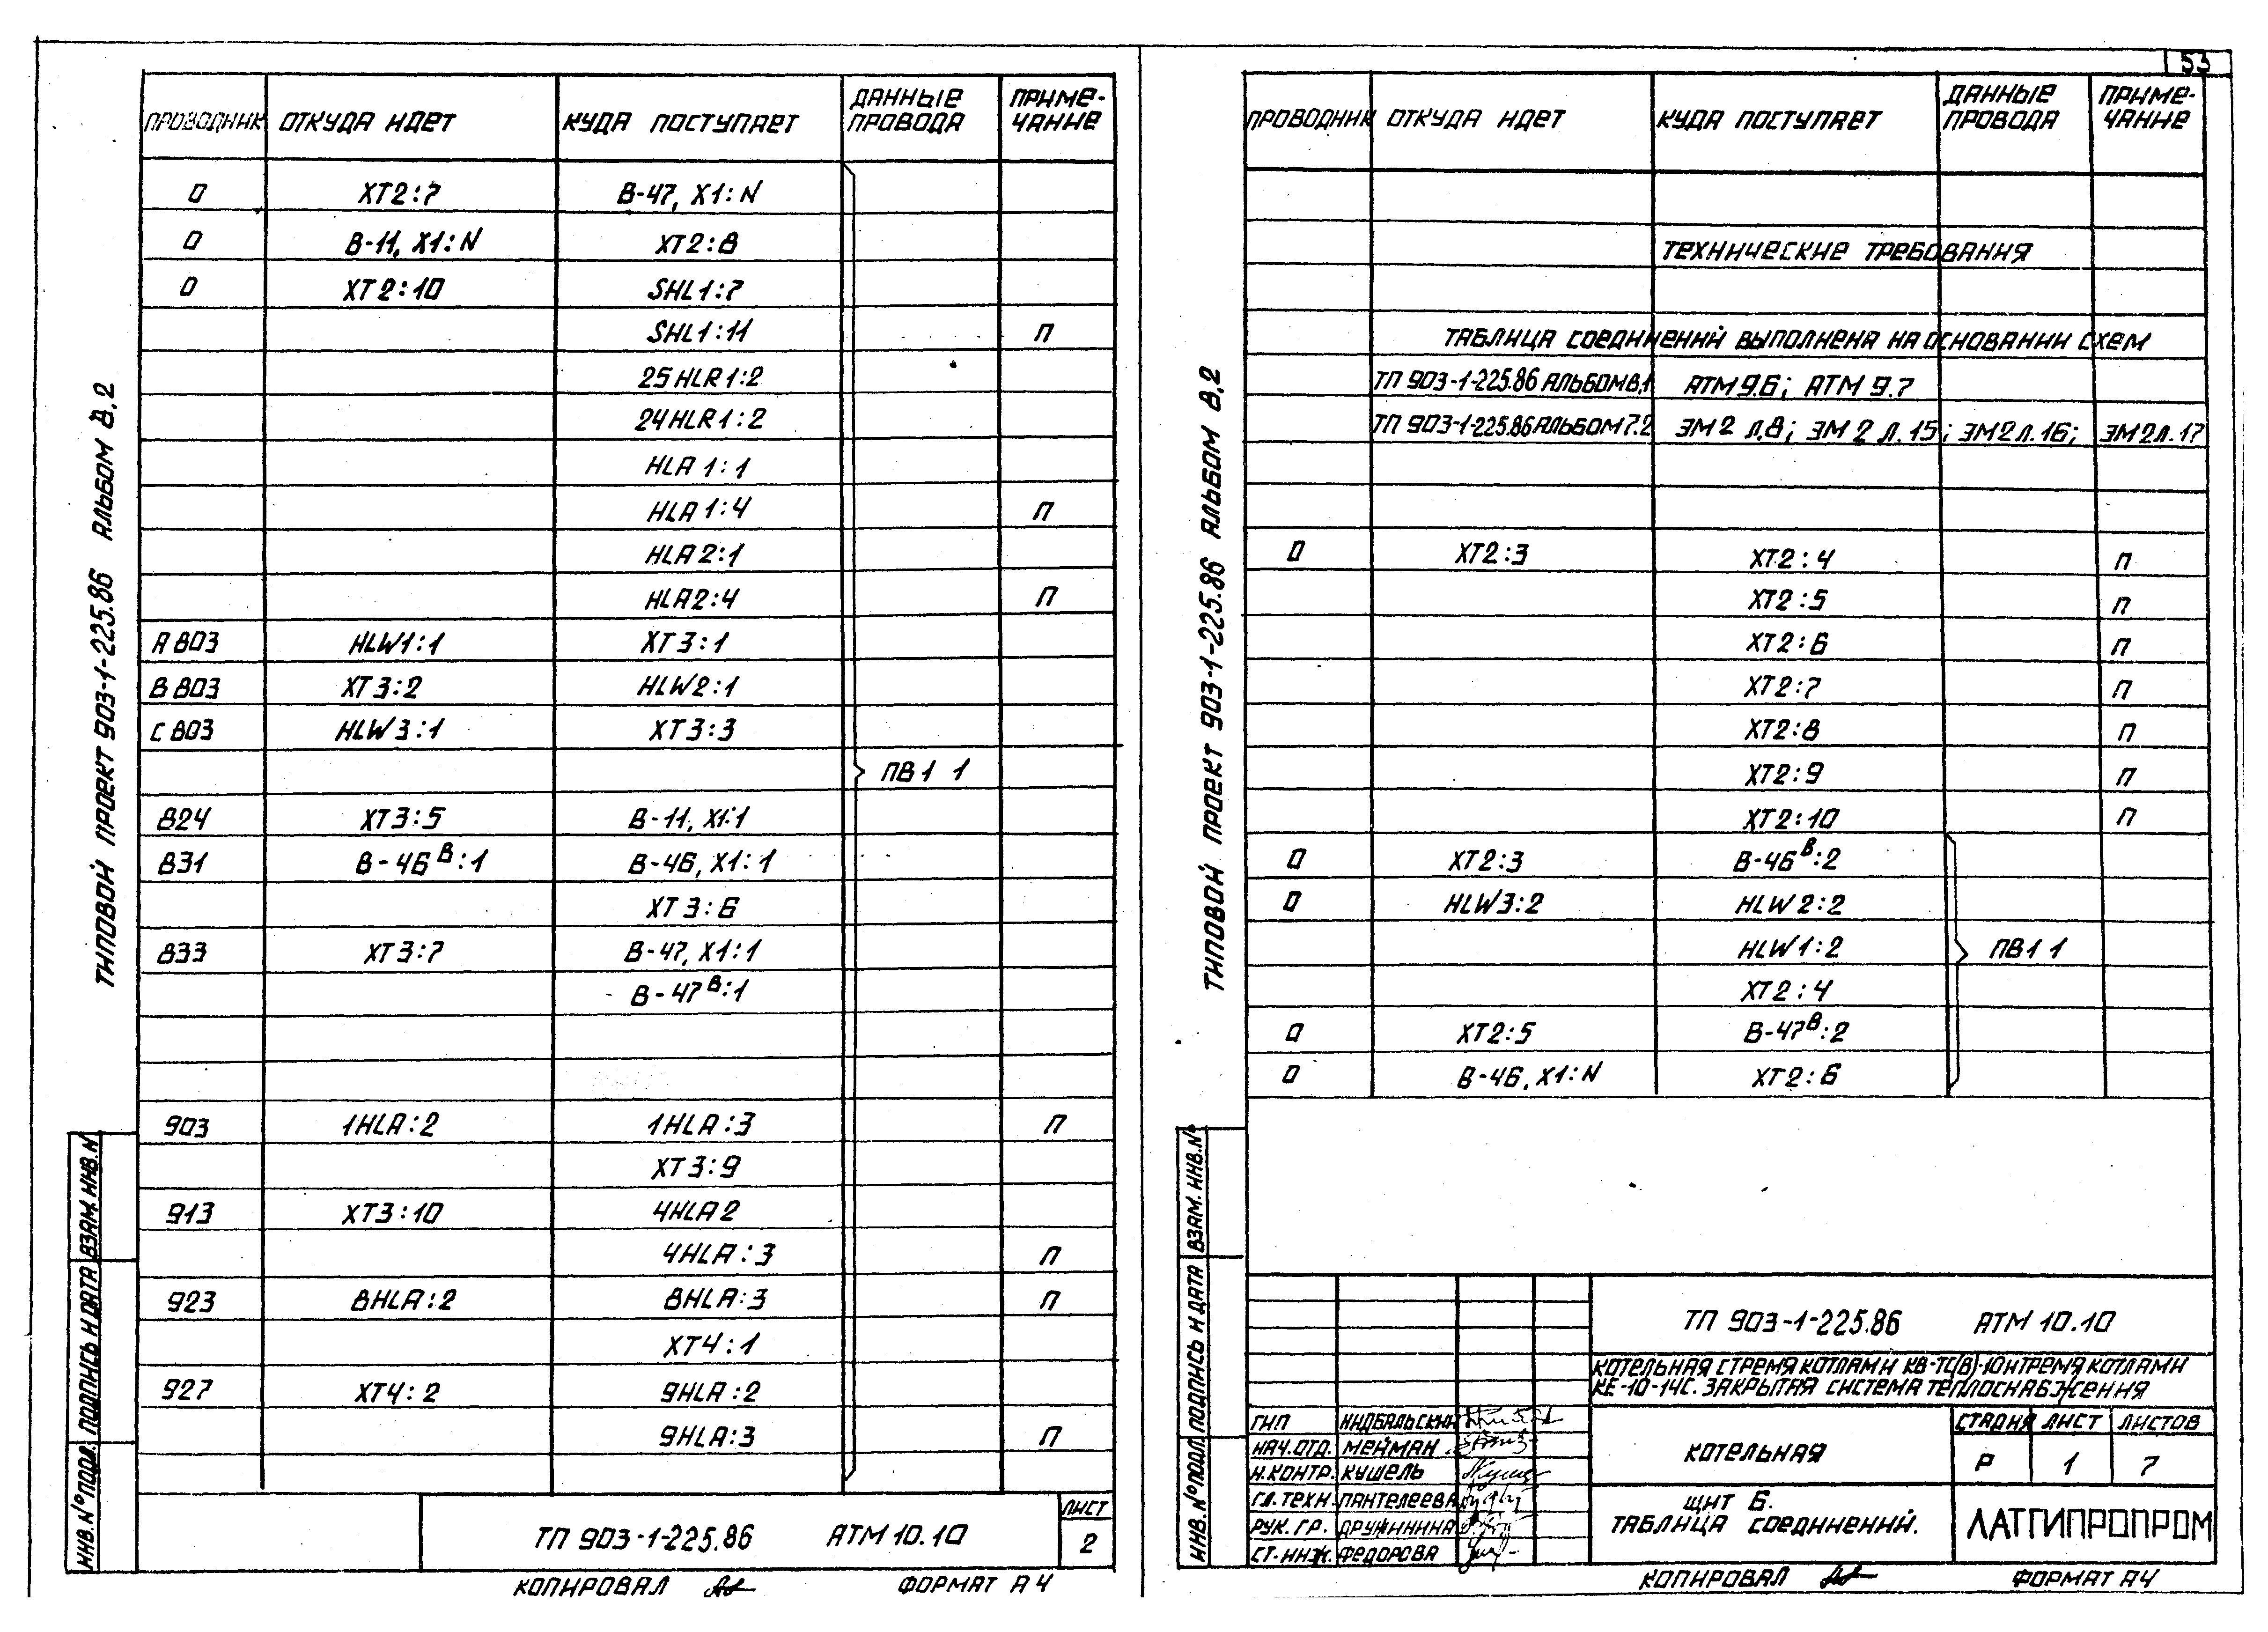 53
ТИПОВОЙ ПРОЕКТ 903-1-225.86 АЛЬБОМ 8.2
ПРОВОДНИК ОТКУДА ИДЕТ КУДА ПОСТУПАЕТ ДАННЫЕ ПРОВОДА ПРИМЕ-ЧАНИЕ
0 XT2:7 В-47, X1:N
0 В-11, X1:N XT2:8
0 XT2:10 SHL1:7
SHL1:11 П
25HLR1:2
24HLR1:2
HLA1:1
HLA1:4 П
HLA2:1
HLA2:4 П
А803 HLW1:1 XT3:1
В803 XT3:2 HLW2:1
С803 HLW3:1 XT3:3
ПВ1 1
824 XT3:5 В-11, X1:1
831 В-46В:1 В-46, X1:1
XT3:6
833 XT3:7 В-47, X1:1
В-47В:1
903 1HLA:2 1HLA:3 П
XT3:9
913 XT3:10 4HLA2
4HLA:3 П
923 8HLA:2 8HLA:3 П
XT4:1
927 XT4:2 9HLA:2
9HLA:3 П
ИНВ.N°ПОДЛ. ПОДПИСЬ И ДАТА ВЗАМ.ИНВ.N
ТП 903-1-225.86 АТМ 10.10
ЛИСТ
2
КОПИРОВАЛ ФОРМАТ А4
ТИПОВОЙ ПРОЕКТ 903-1-225.86 АЛЬБОМ 8.2
ПРОВОДНИК ОТКУДА ИДЕТ КУДА ПОСТУПАЕТ ДАННЫЕ ПРОВОДА ПРИМЕ-ЧАНИЕ
ТЕХНИЧЕСКИЕ ТРЕБОВАНИЯ
ТАБЛИЦА СОЕДИНЕНИЙ ВЫПОЛНЕНА НА ОСНОВАНИИ СХЕМ
ТП 903-1-225.86 АЛЬБОМ 8.1 АТМ 9.6; АТМ 9.7
ТП 903-1-225.86 АЛЬБОМ 7.2 ЭМ2 Л.8; ЭМ2 Л.15; ЭМ2 Л.16; ЭМ2 Л.17
0 XT2:3 XT2:4 П
XT2:5 П
XT2:6 П
XT2:7 П
XT2:8 П
XT2:9 П
XT2:10 П
0 XT2:3 В-46В:2
0 HLW3:2 HLW2:2
HLW1:2 ПВ1 1
XT2:4
0 XT2:5 В-47В:2
0 В-46, X1:N XT2:6
ИНВ.N°ПОДЛ. ПОДПИСЬ И ДАТА ВЗАМ.ИНВ.N°
ТП 903-1-225.86 АТМ 10.10
КОТЕЛЬНАЯ С ТРЕМЯ КОТЛАМИ КВ-ТС(В)-10 И ТРЕМЯ КОТЛАМИ
КЕ-10-14С. ЗАКРЫТАЯ СИСТЕМА ТЕПЛОСНАБЖЕНИЯ
ГИП
НАЧ.ОТД. МЕЙМАН
Н.КОНТР. КУШЕЛЬ
ГЛ.ТЕХН. ПАНТЕЛЕЕВА
РУК.ГР. ДРУЖИНИНА
СТ.ИНЖ. ФЕДОРОВА
КОТЕЛЬНАЯ
СТАДИЯ ЛИСТ ЛИСТОВ
Р 1 7
ЩИТ 6.
ТАБЛИЦА СОЕДИНЕНИЙ.
ЛАТГИПРОПРОМ
КОПИРОВАЛ ФОРМАТ А4